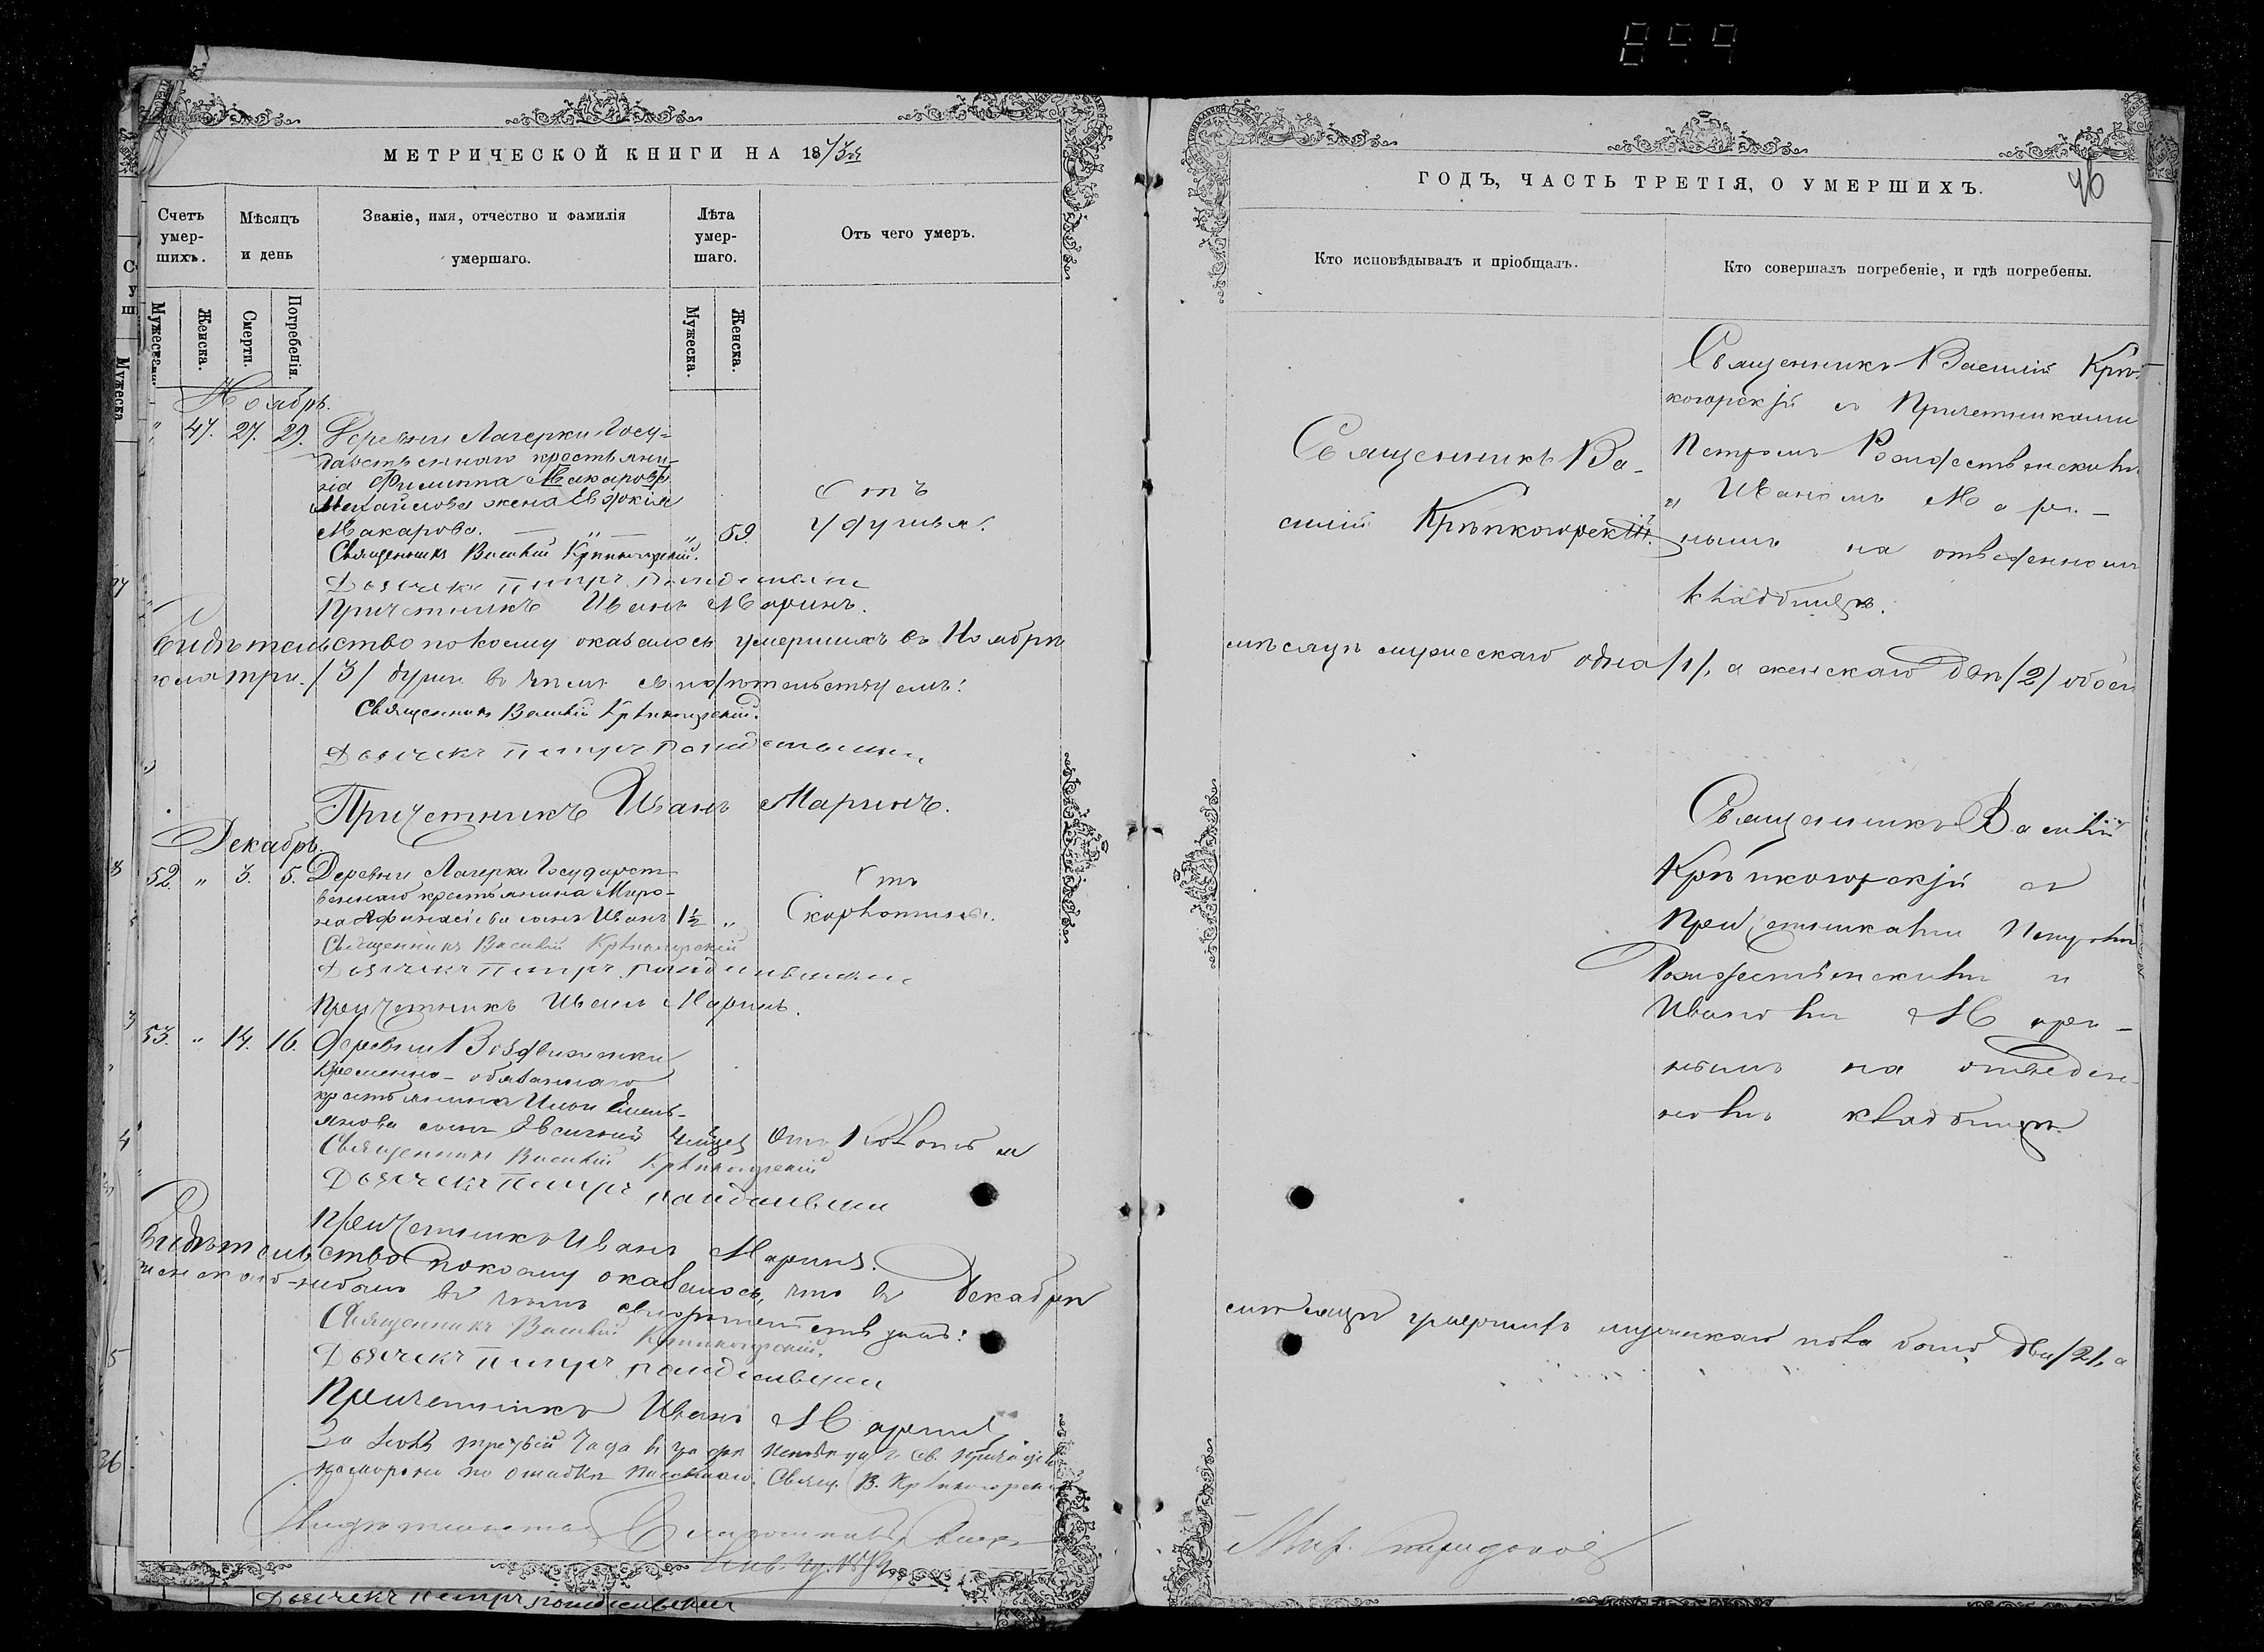 МЕТРИЧЕСКОЙ КНИГИ НА 1873й
Счетъ умер-шихъ.
Мѣсяцъ и день
Званіе, имя, отчество и фамилія умершаго.
Лѣта умер-шаго.
Отъ чего умеръ.
Мужеска.
Женска.
Смерти.
Погребенія.
Мужеска.
Женска.
Ноябрь.
" 47. 27. 29. Деревни Лагерки Госу-
дарственнаго крестьяни-
на Филиппа Макарова
Михайлова жена Евдокія
Макарова. — " — " 59.
Отъ
удушья.
Священникъ Василій Крѣпкогорскій.
Дьячекъ Петръ
Причетникъ Иванъ Маринъ.
Свидѣтельство по коему оказалось умершихъ въ Ноябрѣ
три /3/ души въ чемъ свидѣтельствуемъ:
Священникъ Василій Крѣпкогорскій.
Дьячекъ Петръ
Причетникъ Иванъ Маринъ.
Декабрь.
52. " 3. 5. Деревни Лагерки Государст-
веннаго крестьянина Миро-
на Афанасьева сынъ Иванъ 1½ "
Отъ
Скарлатины.
Священникъ Василій Крѣпкогорскій
Дьячекъ Петръ
Причетникъ Иванъ Маринъ.
53. " 14. 16. Деревни Воздвиженки
Временно-обязаннаго
крестьянина Ильи Емель-
янова сынъ Евсигній
Отъ
Священникъ Василій Крѣпкогорскій
Дьячекъ Петръ
Причетникъ Иванъ Маринъ.
Свидѣтельство по коему оказалось, что въ Декабрѣ
женскаго-небыло въ чемъ свидѣтельствуемъ:
Священникъ Василій Крѣпкогорскій.
Дьячекъ Петръ
Причетникъ Иванъ Маринъ
по ошибкѣ Свящ. В. Крѣпкогорскій
Дьячекъ Петръ
ГОДЪ, ЧАСТЬ ТРЕТІЯ, О УМЕРШИХЪ.
46
Кто исповѣдывалъ и пріобщалъ.
Кто совершалъ погребеніе, и гдѣ погребены.
Священникъ Ва-
силій Крѣпкогорскій.
Священникъ Василій Крѣп-
когорскій съ Причетниками
Петромъ Рождественскимъ
и Иваномъ Мари-
нымъ на отведенномъ
кладбищѣ.
мѣсяцѣ мужескаго одна /1/, а женскаго двѣ /2/ обоег
Священникъ Василій
Крѣпкогорскій съ
Причетниками Петромъ
Рождественскимъ и
Иваномъ Мари-
нымъ на отведен-
номъ кладбищѣ.
мѣсяцѣ умершихъ мужескаго пола было два /2/, а